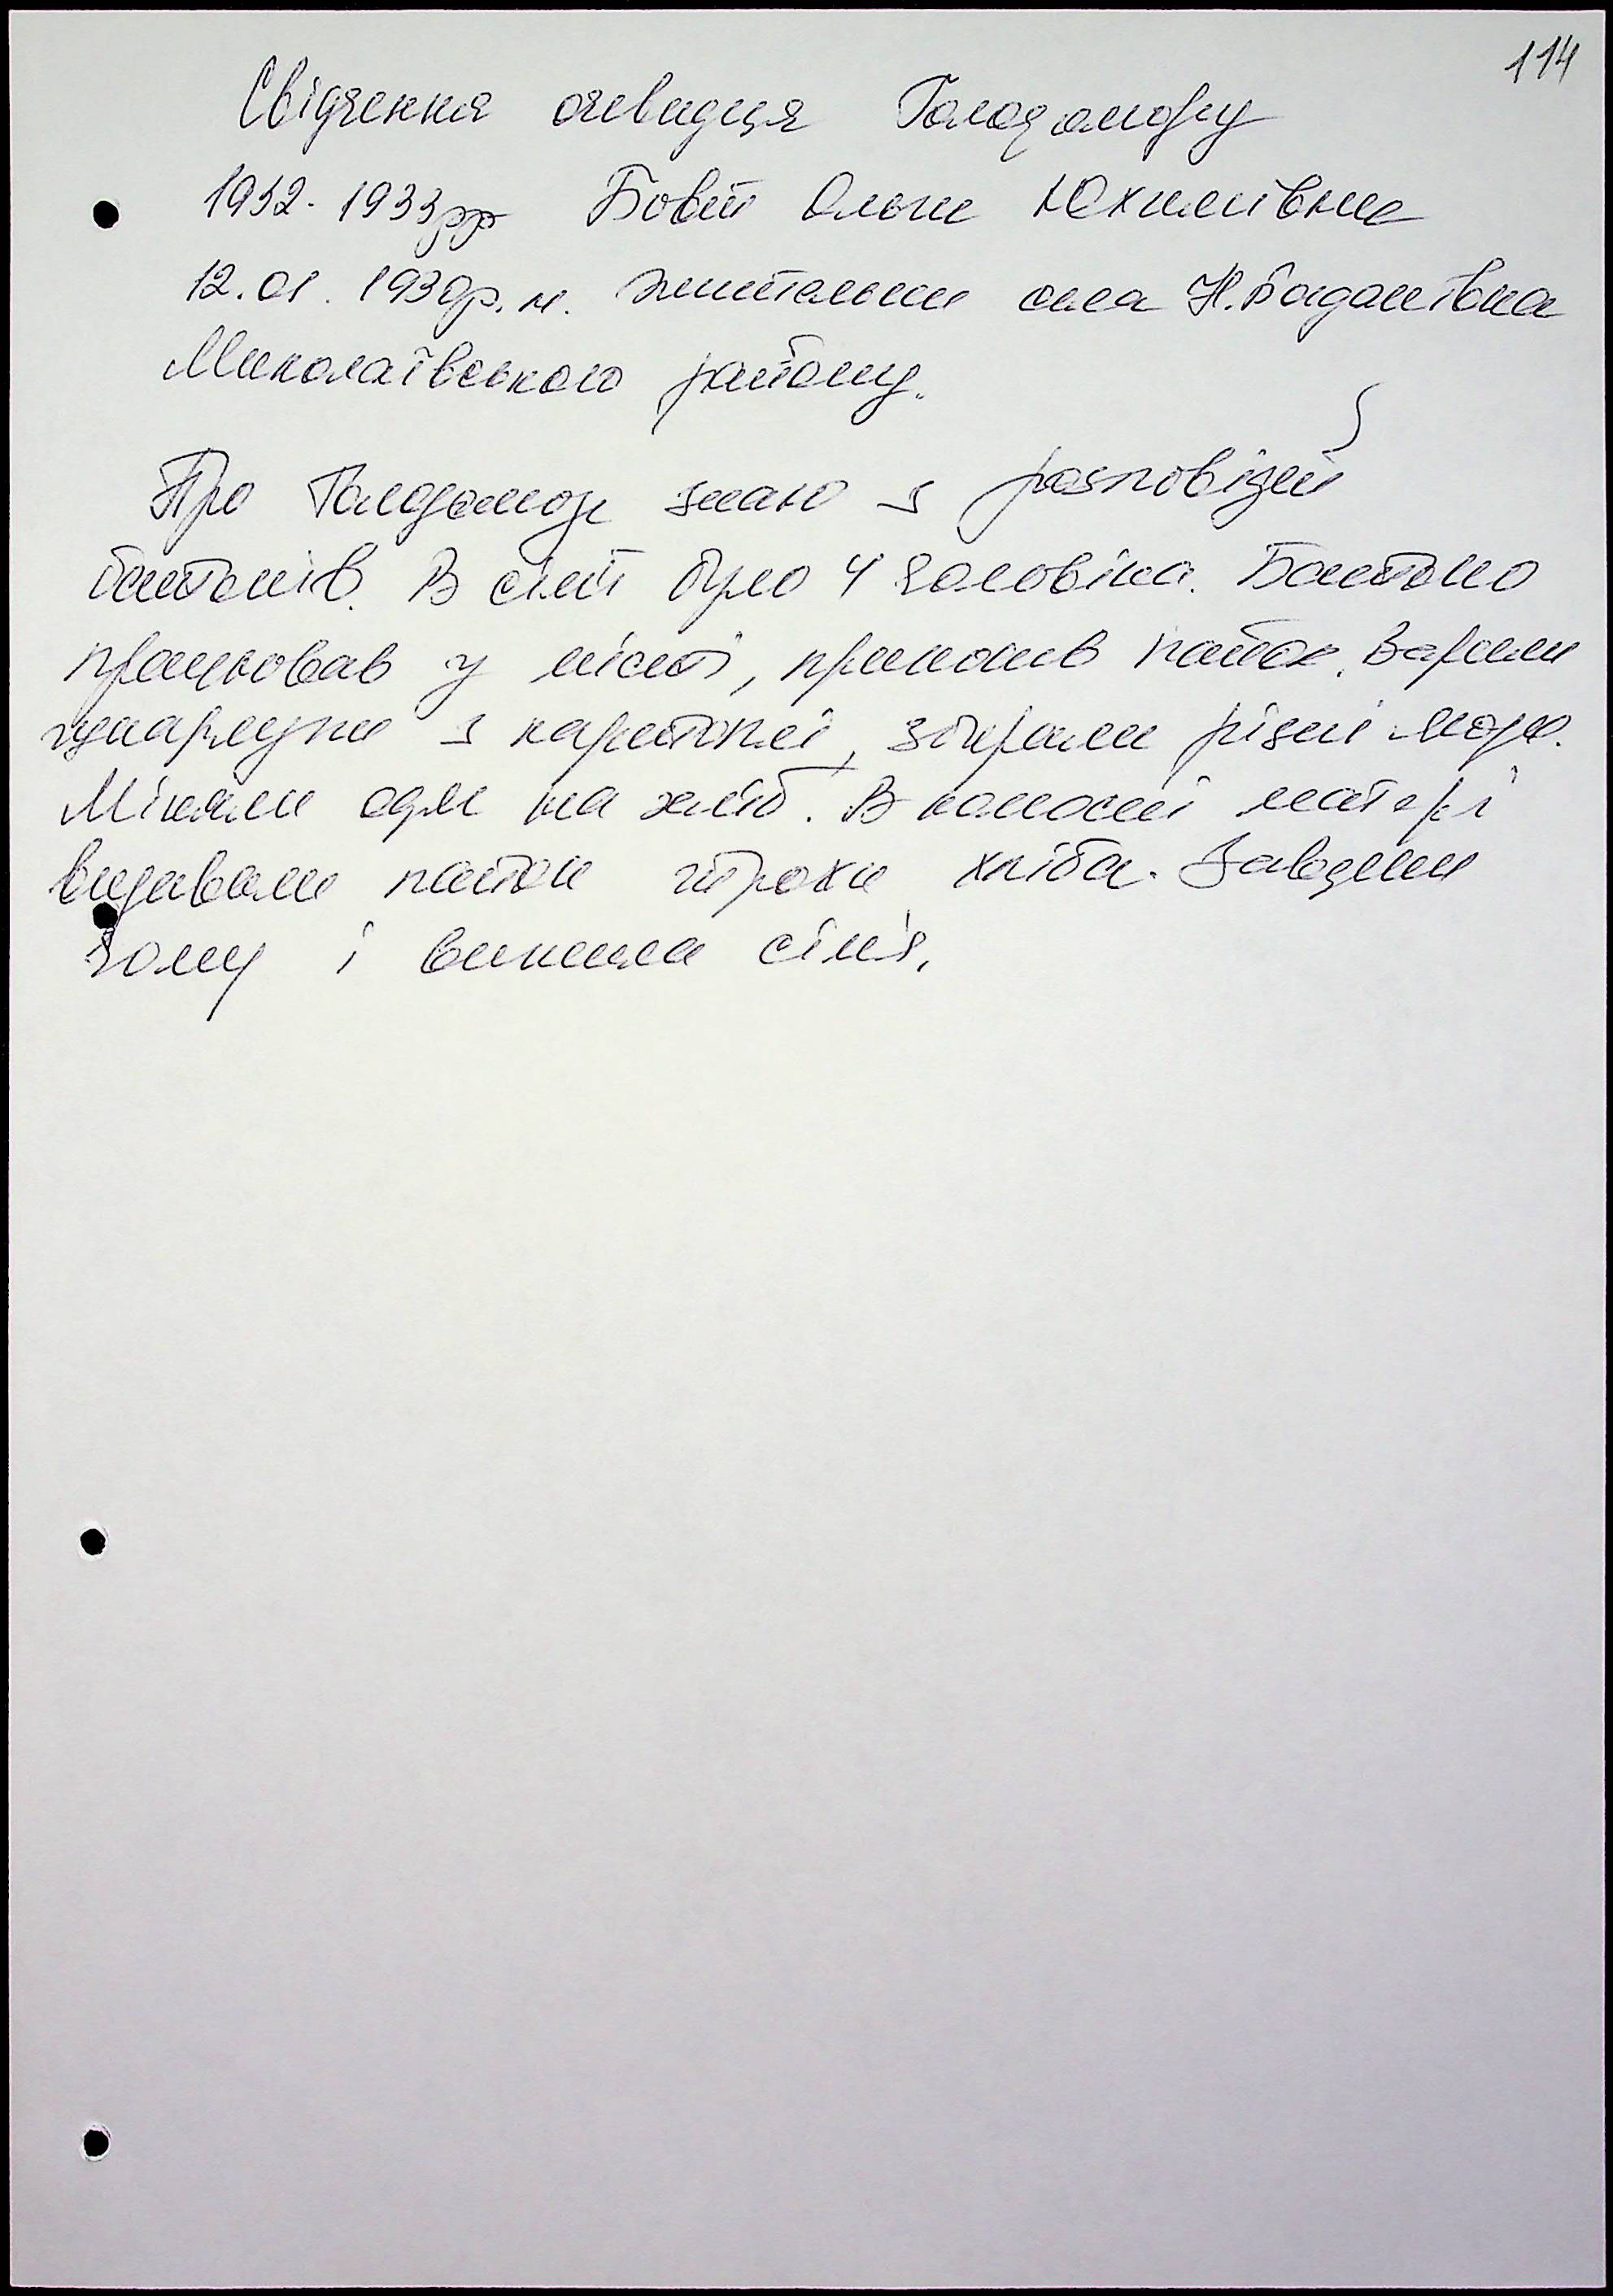 114
Свідчення очевидця Голодомору
1932-1933рр Бовт Ольги Юхимівни
12.01.1930р.н. жительки села Н.Богданівка
Миколаївського району.
Про Голодомор знаю з розповідей
батьків. В сім'ї було 4 чоловіка. Батько
працював у місті, приносив пайок. Варили
з картоплі, збирали різні
Міняли одяг на хліб. В колгоспі матері
видавали пайок трохи хліба. Завдяки
чому і вижила сім'я.